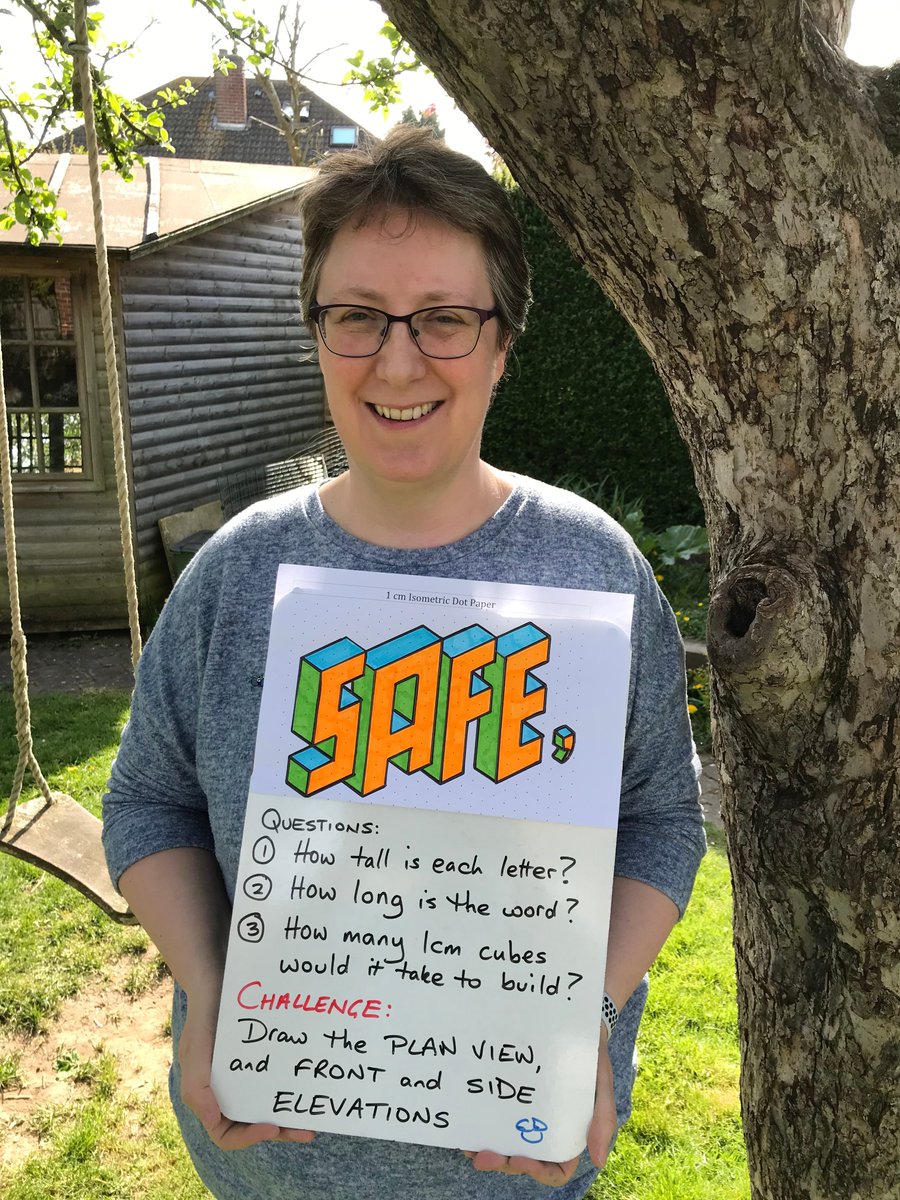 1 cm Isometric Dot Paper
SAFE,
QUESTIONS:
1 How tall is each letter?
2 How long is the word?
3 How many 1cm cubes
would it take to build?
CHALLENGE:
Draw the PLAN VIEW,
and FRONT and SIDE
ELEVATIONS